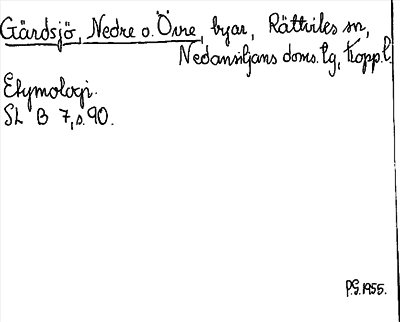 Gärdsjö, Nedre o. Övre, byar, Rättviks sn,
Nedansiljans doms. tg, Kopp. l.
Etymologi.
SL B 7, s. 90.
P.G. 1955.